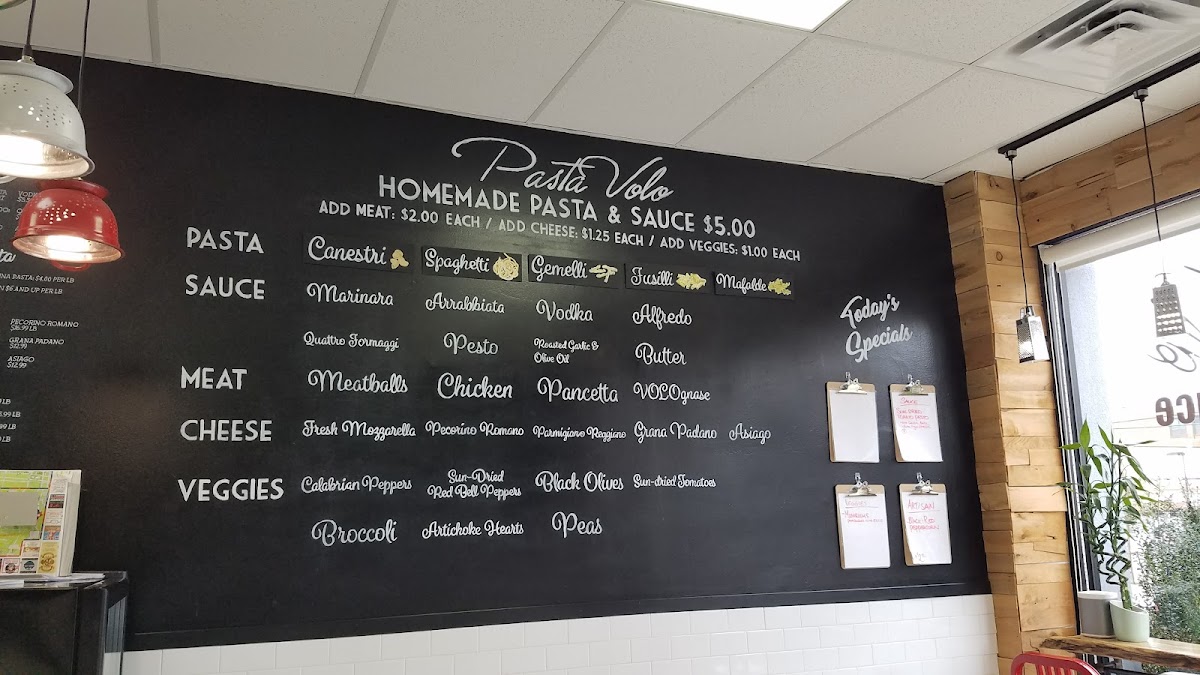 Pasta Volo
HOMEMADE PASTA & SAUCE $5.00
ADD MEAT: $2.00 EACH / ADD CHEESE: $1.25 EACH / ADD VEGGIES: $1.00 EACH
PASTA Canestri Spaghetti Gemelli Fusilli Mafalde
SAUCE Marinara Arrabbiata Vodka Alfredo
Quattro Formaggi Pesto Roasted Garlic & Olive Oil Butter
MEAT Meatballs Chicken Pancetta VOLOgnase
CHEESE Fresh Mozzarella Pecorino Romano Parmigiano Reggiano Grana Padano Asiago
VEGGIES Calabrian Peppers Sun-Dried Red Bell Peppers Black Olives Sun-dried Tomatoes
Broccoli Artichoke Hearts Peas
Today's
Specials
SAUCE
ARTISAN
PASTA: $4.00 PER LB
$6 AND UP PER LB
PECORINO ROMANO
$16.99 LB
GRANA PADANO
$12.99
ASIAGO
$12.99